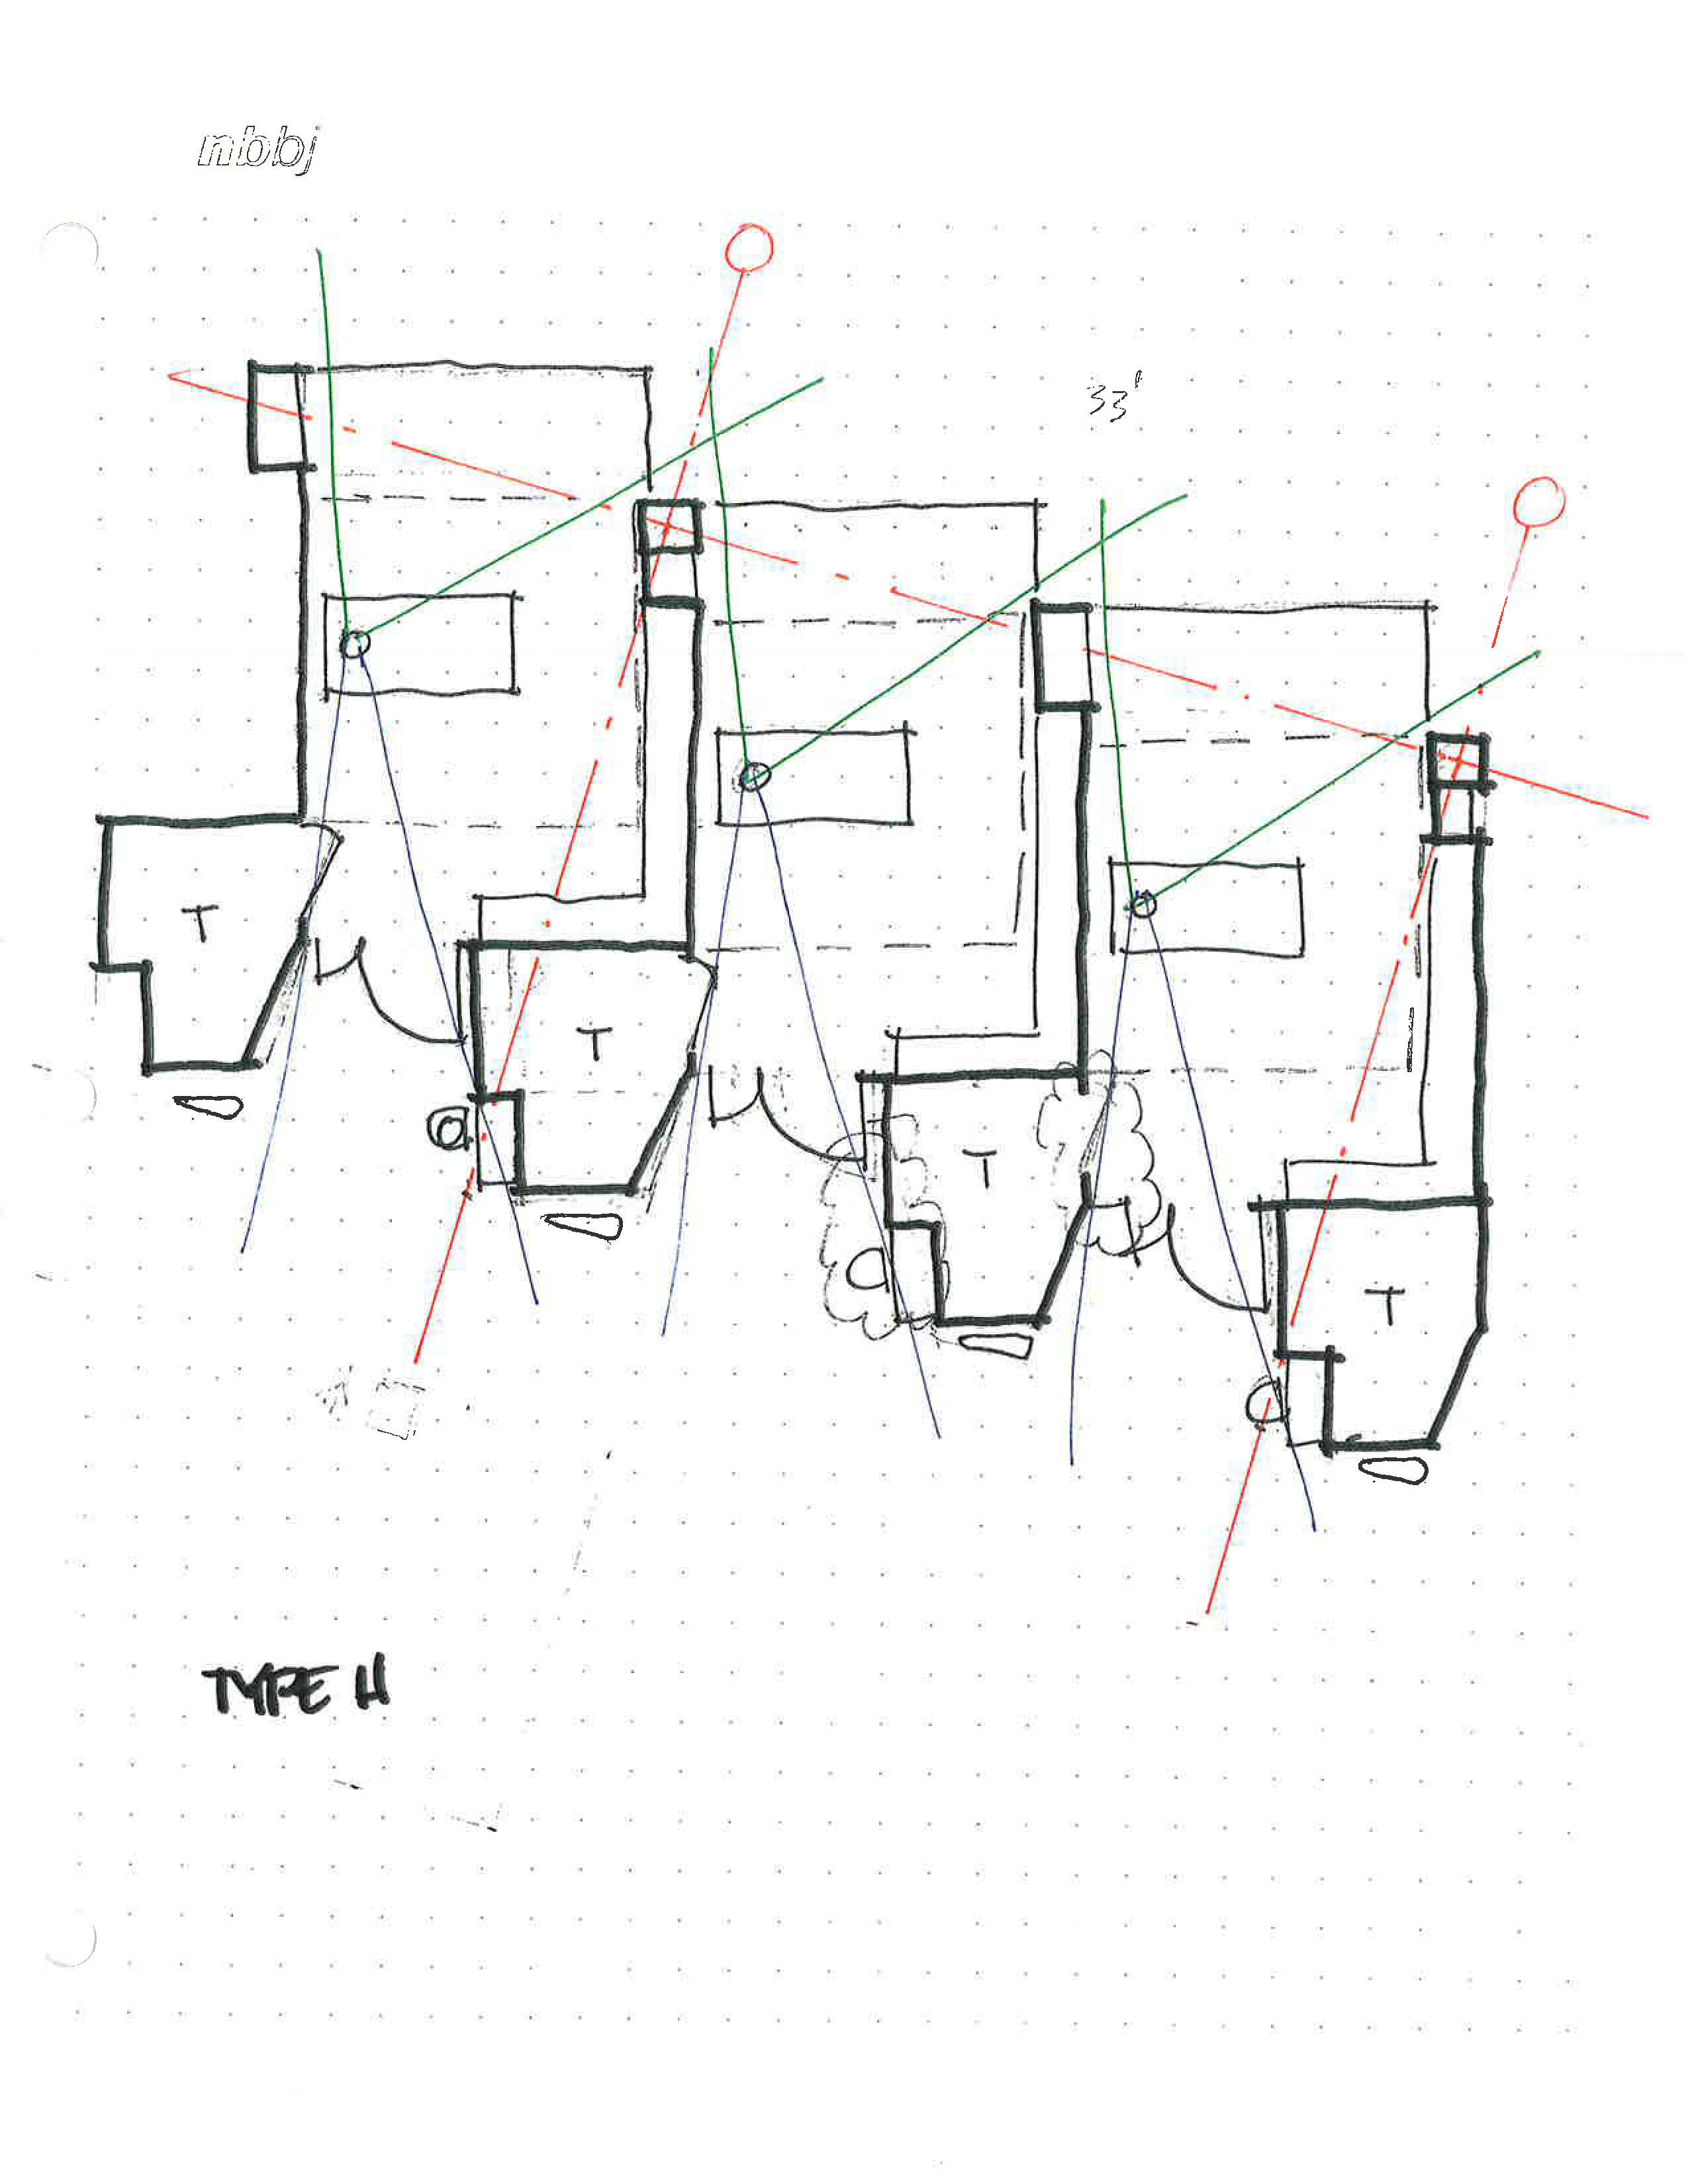 nbbj
33'
T
T
T
T
TYPE H